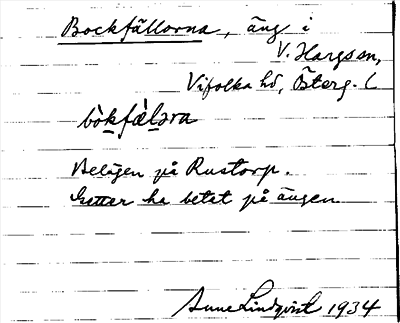 Bockfållorna, äng i
V. Hargs sn,
Vifolka hd, Österg. l.
bòkfàlɔra
Belägen på Rustorp.
Getter ha betat på ängen
Sune Lindqvist 1934